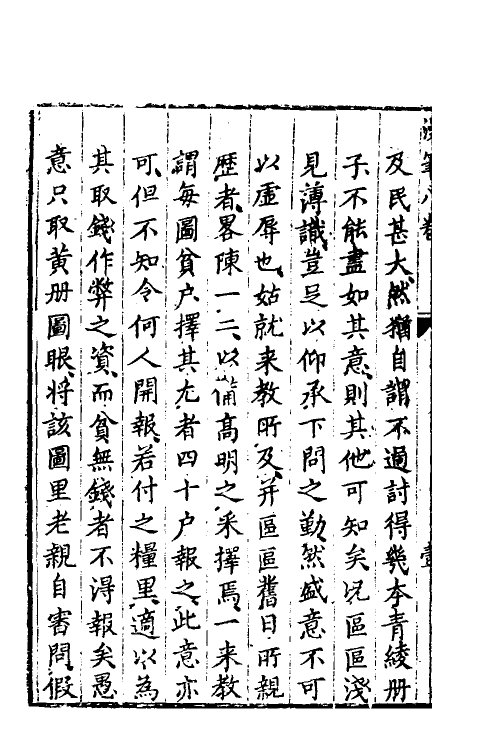 及民甚大然猶自謂不過討得幾本青綾册
子不能盡如其意則其他可知矣况區區淺
見薄識豈足以仰承下問之勤然盛意不可
以虚辱也姑就来教所及并區區舊日所親
歴者畧陳一二以備高明之采擇焉一来教
謂每圖貧户擇其尤者四十户報之此意亦
可但不知令何人開報若付之糧里適以為
其取錢作弊之資而貧無錢者不得報矣愚
意只取黄册圖眼将該圖里老親自審問假